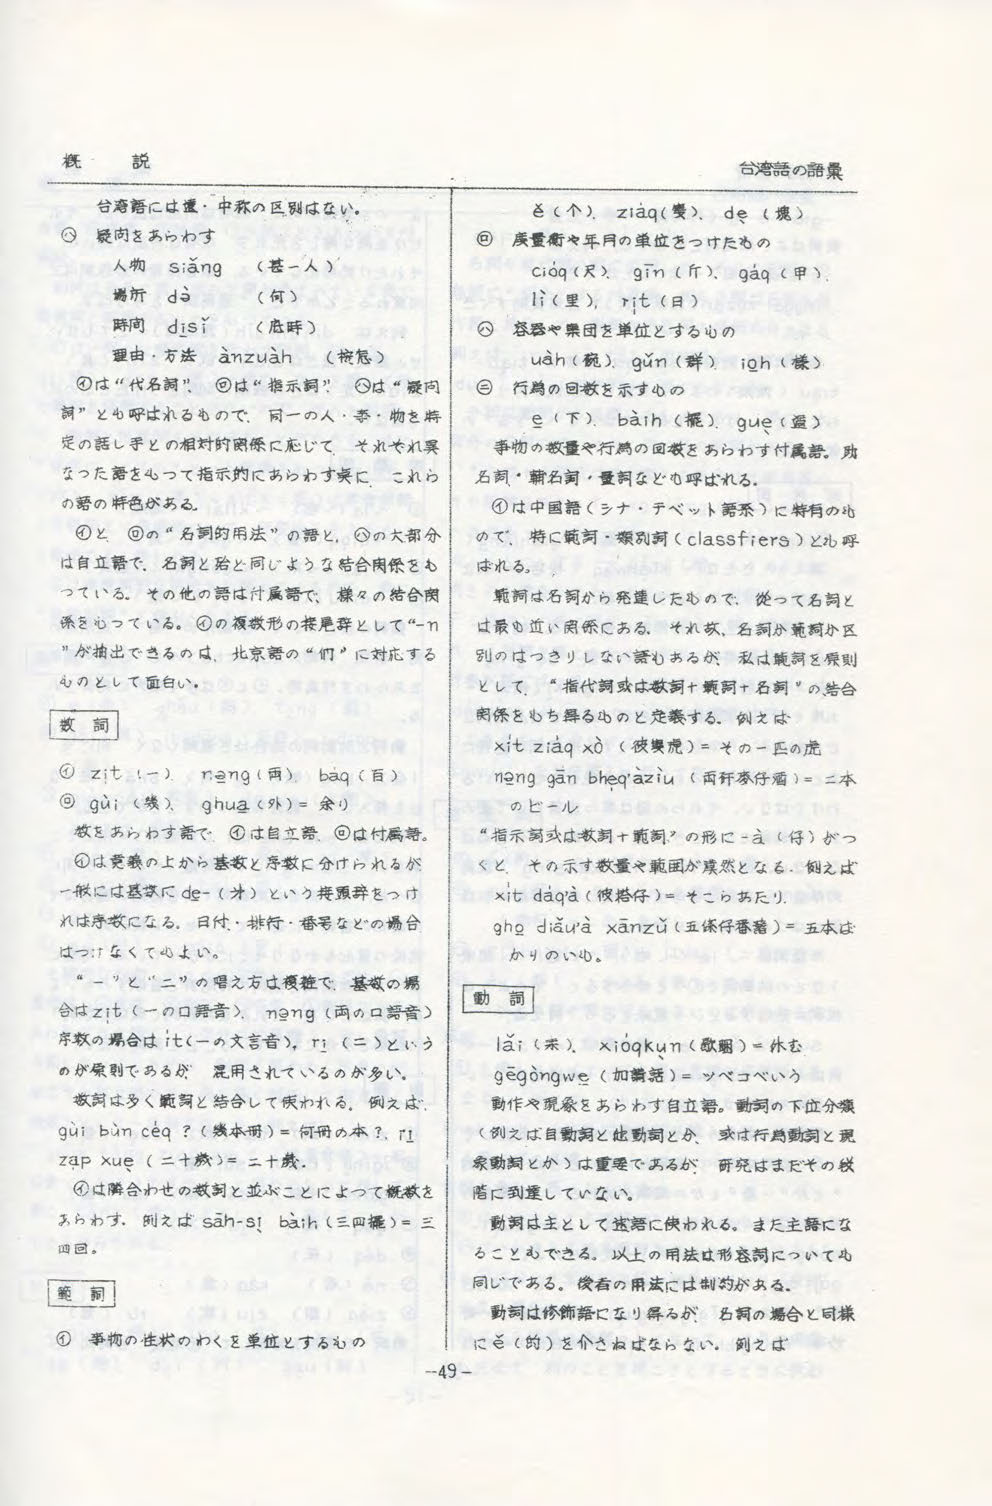 概　説
台湾語の語彙
台湾語には遠・中称の区別はない。
㋩ 疑問をあらわす
人物 siǎng （甚一人）
場所 dà （何）
時間 di̱sǐ （底時）
理由・方法 ànzuàh （按怎）
㋑は“代名詞”、㋺は“指示詞”、㋩は“疑問
詞”とも呼ばれるもので、同一の人・事・物を特
定の話し手との相対的関係に応じて、それぞれ異
なった語をもって指示的にあらわす点に、これら
の語の特色がある。
㋑と、㋺の“名詞的用法”の語と、㋩の大部分
は自立語で、名詞と殆ど同じような結合関係をも
っている。その他の語は付属語で、様々の結合関
係をもっている。㋑の複数形の接尾辞として“-n
”が抽出できるのは、北京語の“们”に対応する
ものとして面白い。
数　詞
㋑ zi̍t （一）、 nə̱ng（両）、 bāq（百）
㋺ gùi （幾）、 ghua̱（外）＝ 余り
数をあらわす語で、㋑は自立語、㋺は付属語。
㋑は意義の上から基数と序数に分けられるが、
一般には基数に de̱-（第）という接頭辞をつけ
れば序数になる。日付・排行・番号などの場合
はつけなくてもよい。
“一”と“二”の唱え方は複雑で、基数の場
合はzi̍t（一の口語音）、 nə̱ng（両の口語音）
序数の場合は it（一の文言音）、 ri̱（二）という
のが原則であるが、混用されているのが多い。
数詞は多く範詞と結合して使われる。例えば、
gùi bùn céq ？（幾本冊）＝ 何冊の本？、ri̱
za̍p xue̱ （二十歳）＝ 二十歳。
㋑は隣合わせの数詞と並ぶことによって概数を
あらわす。例えば sāh-sı̱ bàih（三四擺）＝ 三
四回。
範　詞
㋑ 事物の性状のわくを単位とするもの
ě（个）、 ziáq（隻）、 de̱ （塊）
㋺ 度量衡や年月の単位をつけたもの
cióq（尺）、 gīn（斤）、 gáq（甲）、
lì（里）、 ri̍t（日）
㋩ 容器や集団を単位とするもの
uàh（碗）、 gǔn（群） io̱h（様）
㋥ 行為の回数を示すもの
e̱ （下）、 bàih（擺）、 gue̱（過）
事物の数量や行為の回数をあらわす付属語。助
名詞・輔名詞・量詞なども呼ばれる。
㋑は中国語（シナ・チベット語系）に特有のも
ので、特に範詞・類別詞（classfiers）とも呼
ばれる。
範詞は名詞から発達したもので、従って名詞と
は最も近い関係にある。それ故、名詞か範詞か区
別のはっきりしない語もあるが、私は範詞を原則
として、“指代詞或は数詞＋範詞＋名詞”の結合
関係をもち得るものと定義する。例えば
xít ziáq xò （彼隻虎）＝ その一匹の虎
nə̱ng gān bhe̍q'àziù （両矸麦仔酒）＝ 二本
のビール
“指示詞或は数詞＋範詞”の形に -à（仔）がつ
くと、その示す数量や範囲が漠然となる。例えば
xít dáq'à（彼搭仔）＝ そこらあたり
gho̱ diǎu'à xānzǔ（五條仔番薯）＝ 五本ば
かりのいも。
動　詞
lǎi（来）、 xióqkùn（歇睏）＝ 休む
gēgòngwe̱（加講話）＝ ツベコベいう
動作や現象をあらわす自立語。動詞の下位分類
（例えば自動詞と他動詞とか、或は行為動詞と現
象動詞とか）は重要であるが、研究はまだその段
階に到達していない。
動詞は主として述語に使われる。また主語にな
ることもできる。以上の用法は形容詞についても
同じである。後者の用法には制約がある。
動詞は修飾語になり得るが、名詞の場合と同様
にě（的）を介さねばならない。例えば
-49-